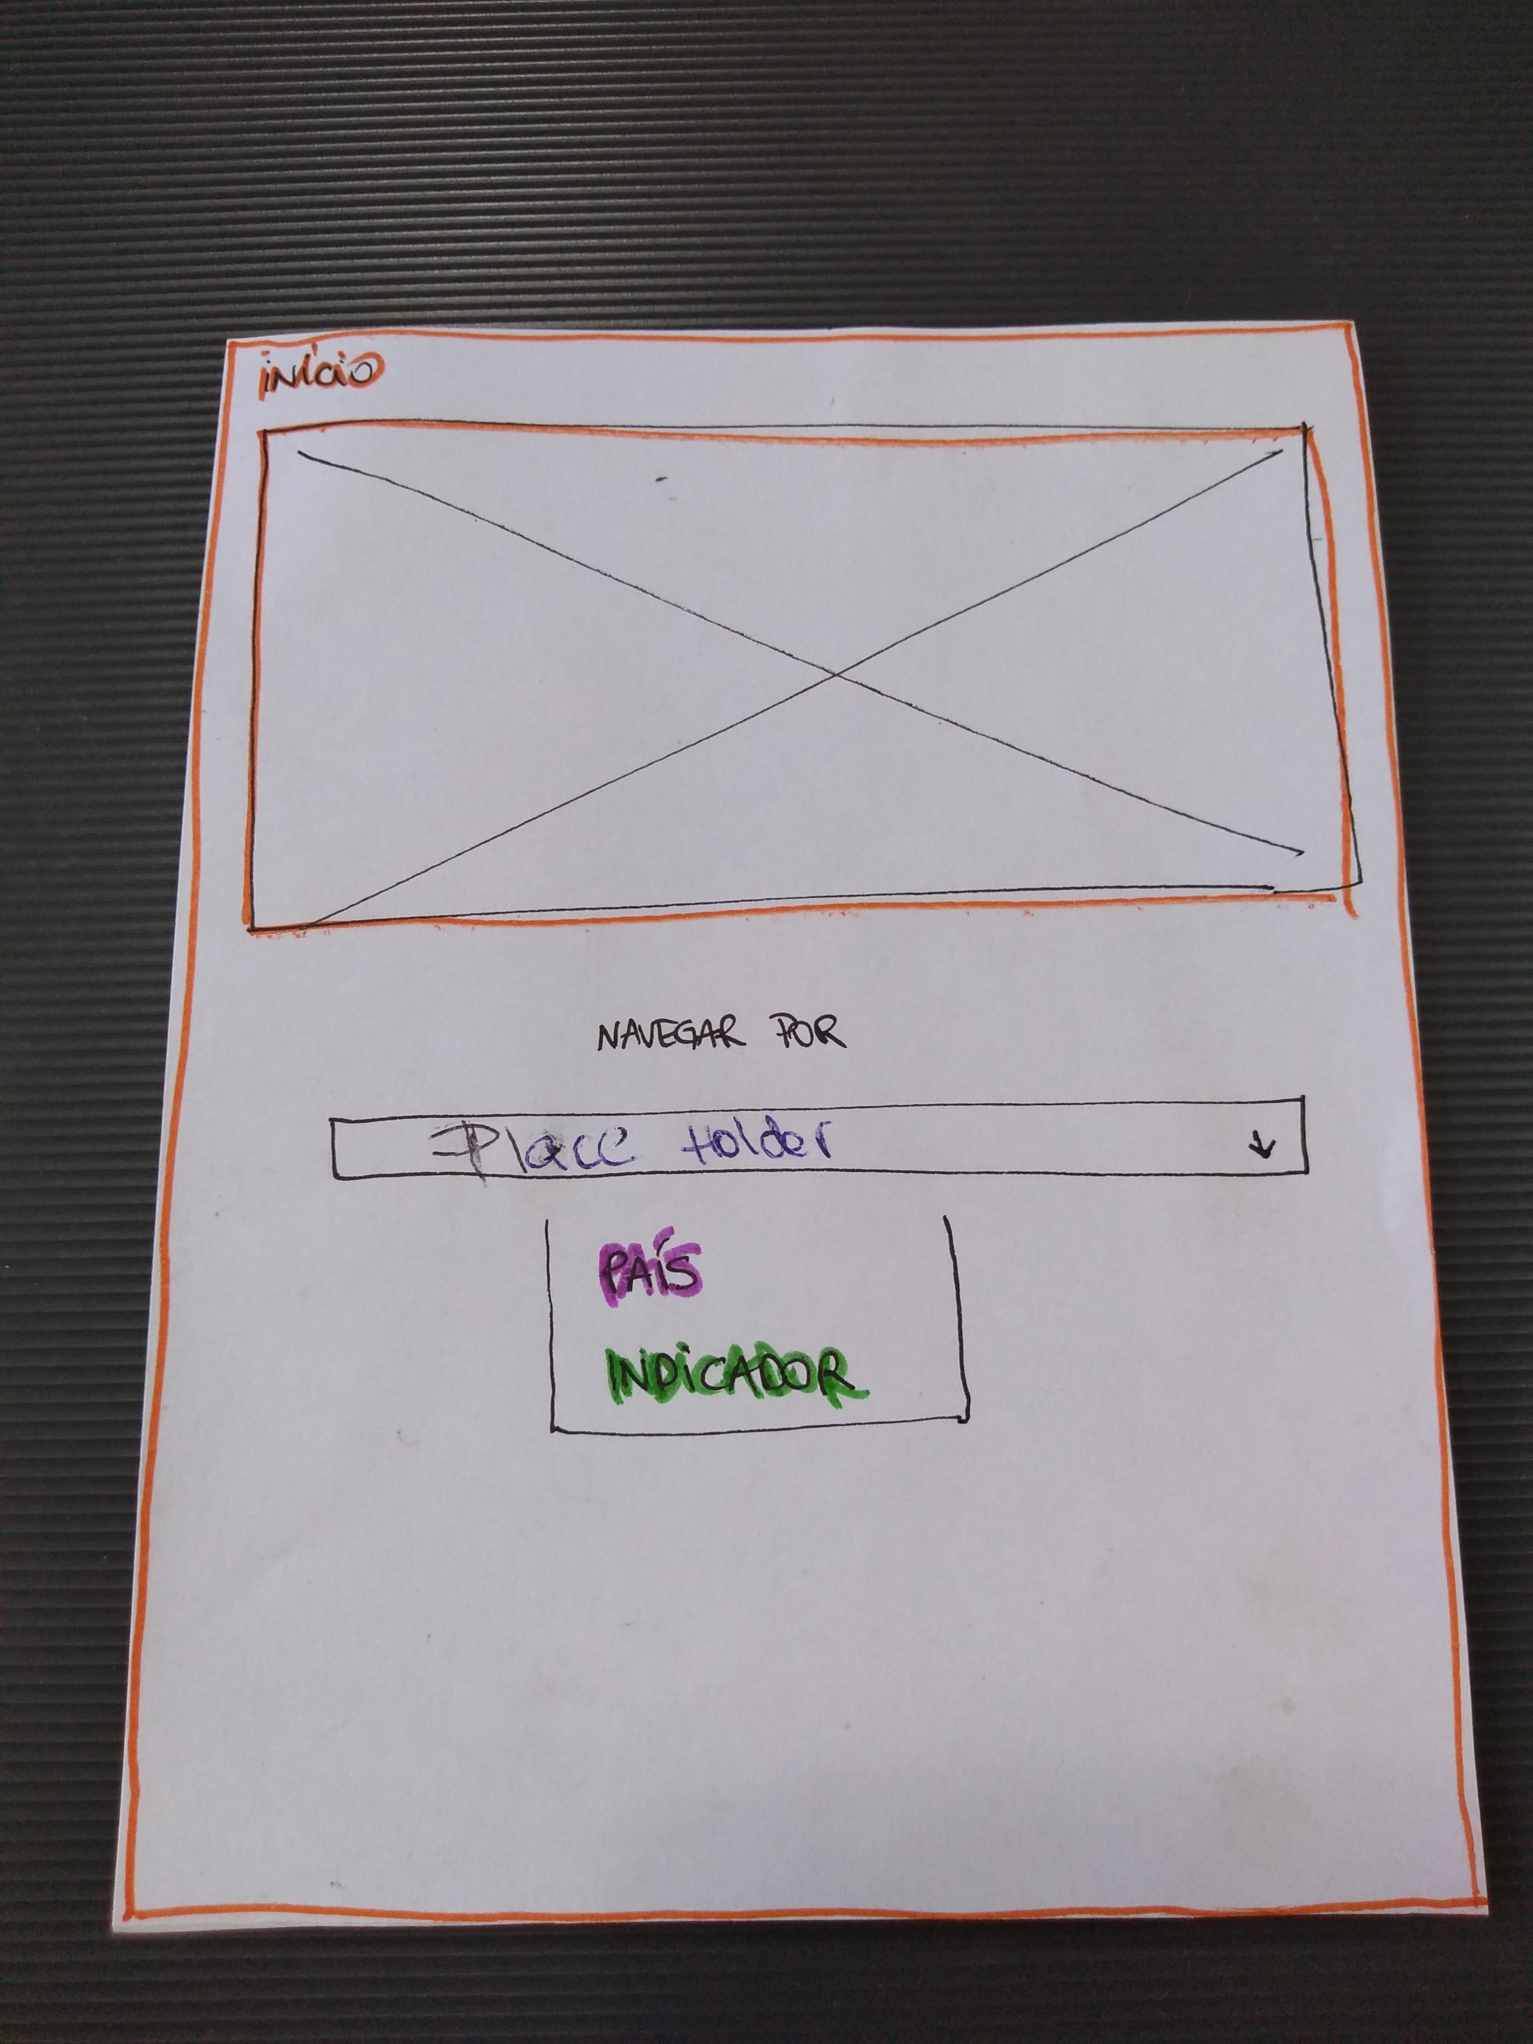 inicio
NAVEGAR POR
Place Holder
PAÍS
INDiCADOR